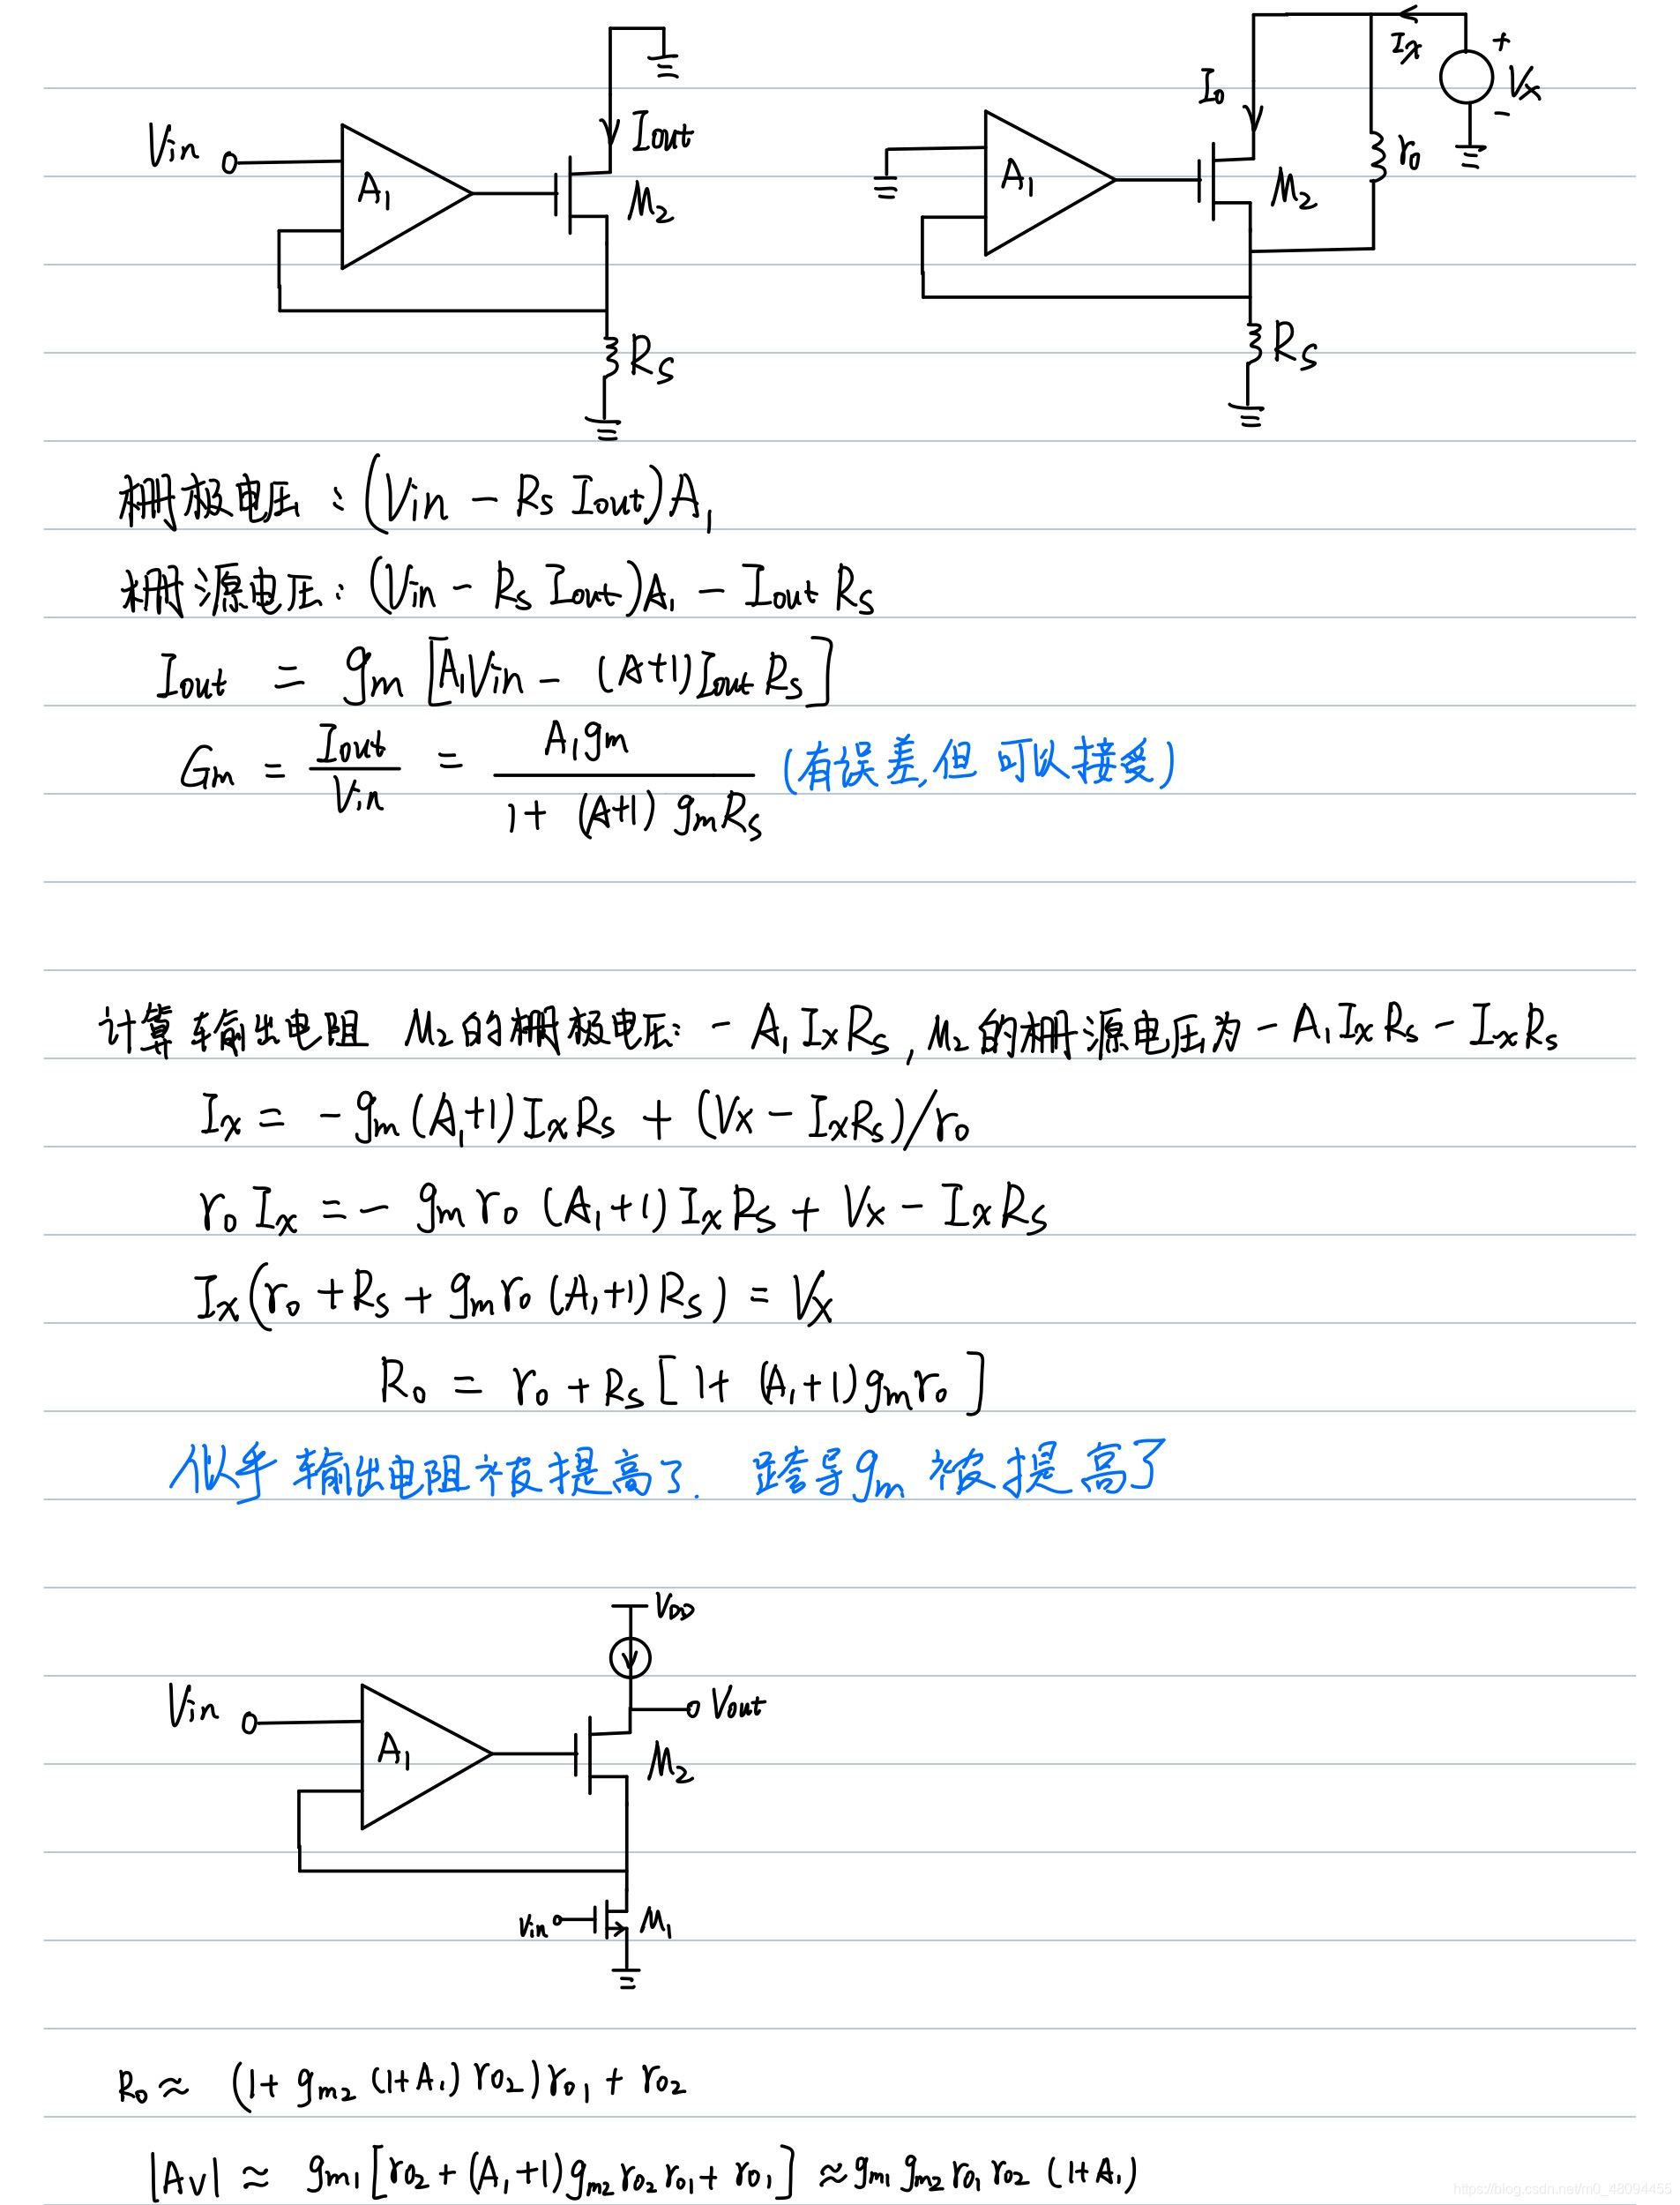 Vin A₁ Iout M₂ Rs
A₁ I₀ M₂ Ix + Vx - r₀ Rs
栅极电压:(Vin - Rs Iout)A₁
栅源电压:(Vin - Rs Iout)A₁ - Iout Rs
Iout = gm [A₁Vin - (A+1)Iout Rs]
Gm = Iout/Vin = A₁gm / 1+(A+1)gmRs (有误差,但可以接受)
计算输出电阻 M₂的栅极电压: - A₁IxRs, M₂的栅源电压为 - A₁IxRs - IxRs
Ix = -gm(A₁+1)IxRs + (Vx - IxRs)/r₀
r₀Ix = - gmr₀(A₁+1)IxRs + Vx - IxRs
Ix(r₀ + Rs + gmr₀(A₁+1)Rs) = Vx
R₀ = r₀ + Rs[1+(A₁+1)gmr₀]
似乎输出电阻被提高了. 跨导gm被提高了
VDD
Vin A₁ Vout
M₂
Vin M₁
R₀ ≈ (1+gm₂(1+A₁)r₀₂)r₀₁ + r₀₂
|Av| ≈ gm₁[r₀₂+(A₁+1)gm₂r₀₂r₀₁+r₀₁] ≈ gm₁gm₂r₀₁r₀₂(1+A₁)
https://blog.csdn.net/m0_48094455